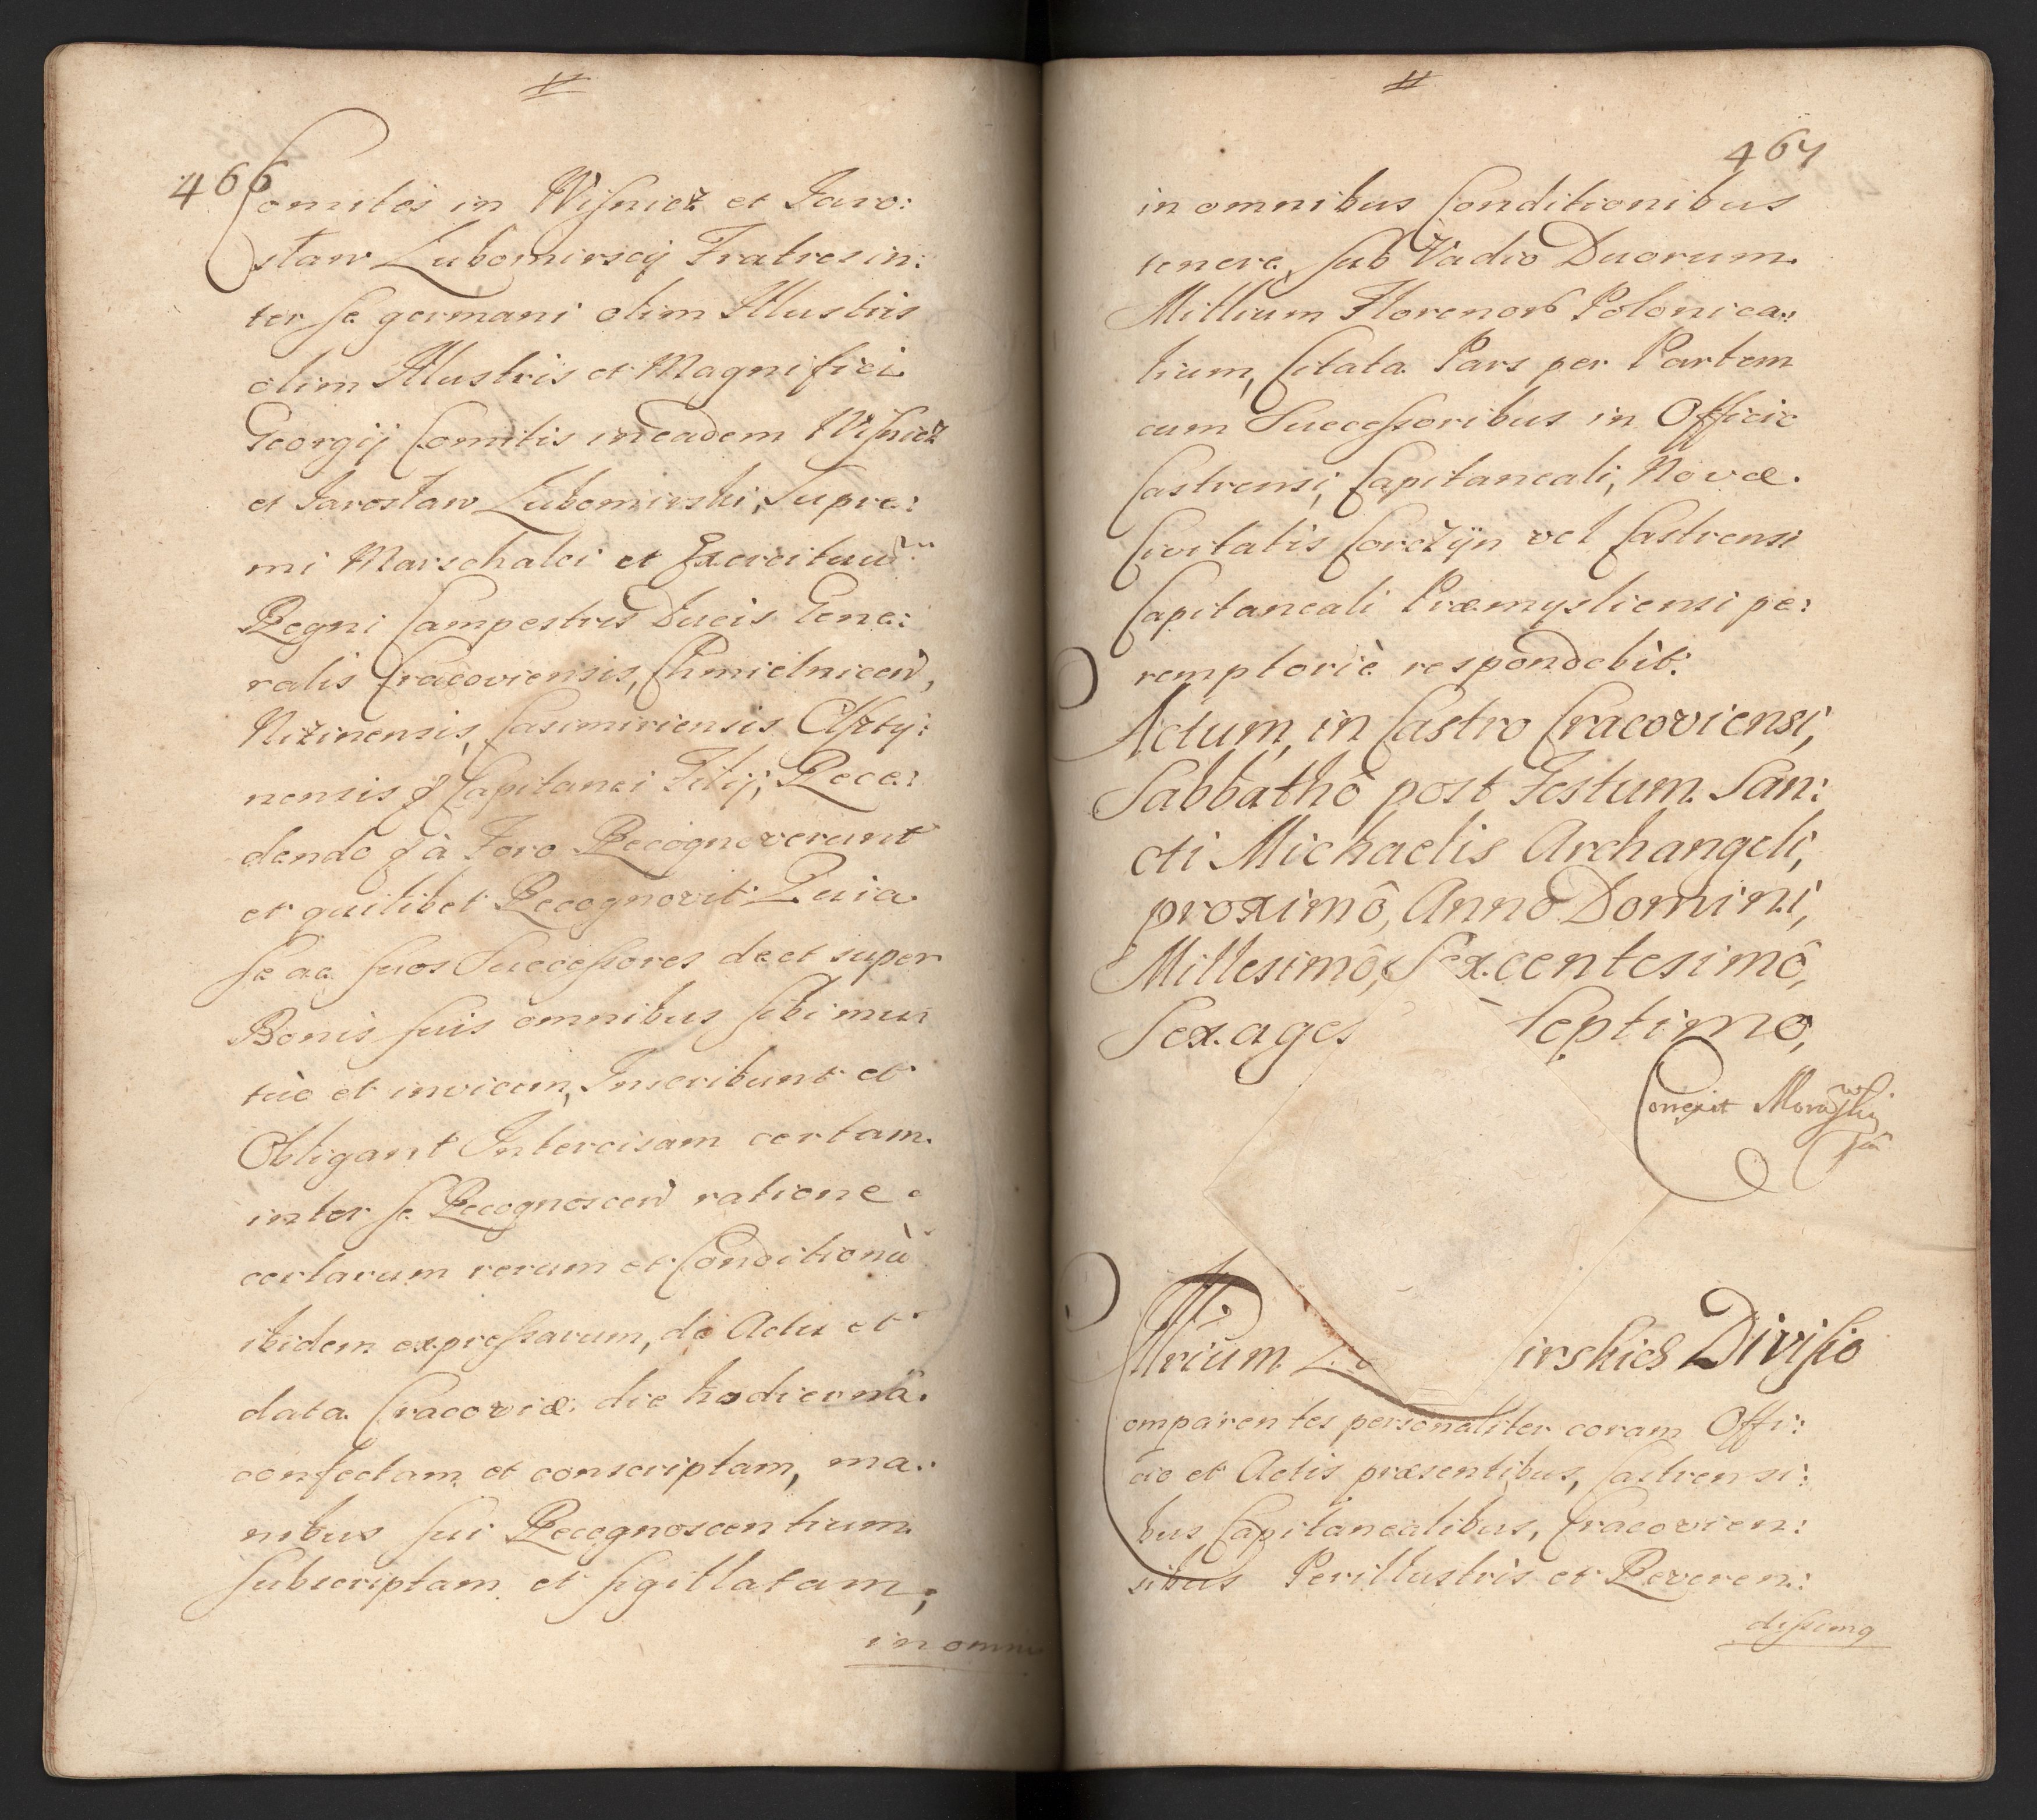 #
466
Comites in Wiſnicz et Jaro:
sław Lubomirscy Fratres in:
ter ſe germani olim Illustris
olim Illustris et Magnifici
Georgij Comitis in eadem Wiſnicz
et Jarosław Lubomirski, Supre:
mi Marschalci et Exercituũ
Regni Campestris Ducis Gene:
ralis Cracoviensis, Chmielnicen,
Nizinensis, Casimiriensis
nensis q Capitanei Filij; Rece:
dendo q à Foro Recognoverunt
et quilibet Recognovit Quia
ſe ac ſuos Succeſsores de et super
Bonis ſuis omnibus ſibi mu:
tùo et invicem, Inscribunt et
Obligant Intercisam certam
inter ſe Recognoscen ratione
certarum rerum et Conditionũ
ibidem expreſsarum, de Actu et
data Cracoviæ die hodiernâ
confectam et conscriptam, ma:
nibus ſui Recognoscentium
ſubscriptam et ſigillatam;
in omni
#
467
in omnibus Conditionibus
tenere, ſub Vadio Duorum
Millium Florenor Polonica:
lium, Citata Pars per Partem
cum Succeſsoribus in Officio
Castrensi, Capitaneali, Novæ
Civitatis Corczÿn vel Castrensi
Capitaneali Præmysliensi pe:
remptoriè respondebit:
Actum, in Castro Cracoviensi,
Sabbathô post Festum San:
cti Michaelis Archangeli,
proximô, Anno Domini,
Millesimô, Sexcentesimô,
Sexages septimo,
Correxit Morawſki
Trium L irskich Diviſio
Comparentes personaliter coram Offi:
cio et Actis præsentibus, Castrensi:
bus Capitanealibus, Cracovien:
sibus Perillustris et Reveren:
diſsimq